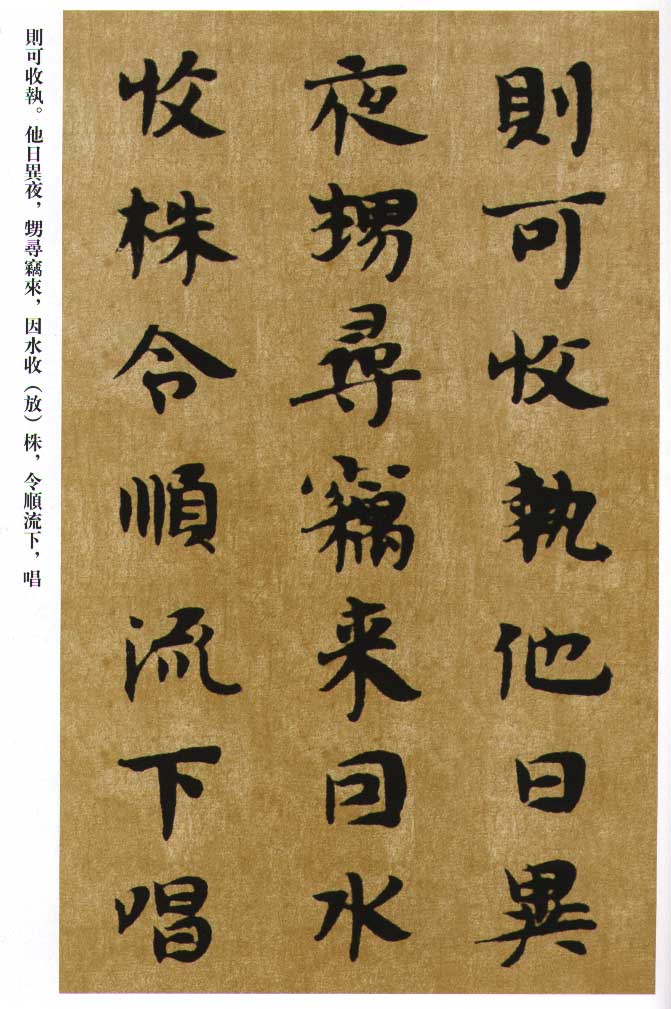 則可收執他日異
夜甥尋竊来因水
收株令順流下唱
則可收執。他日異夜，甥尋竊來，因水收（放）株，令順流下，唱